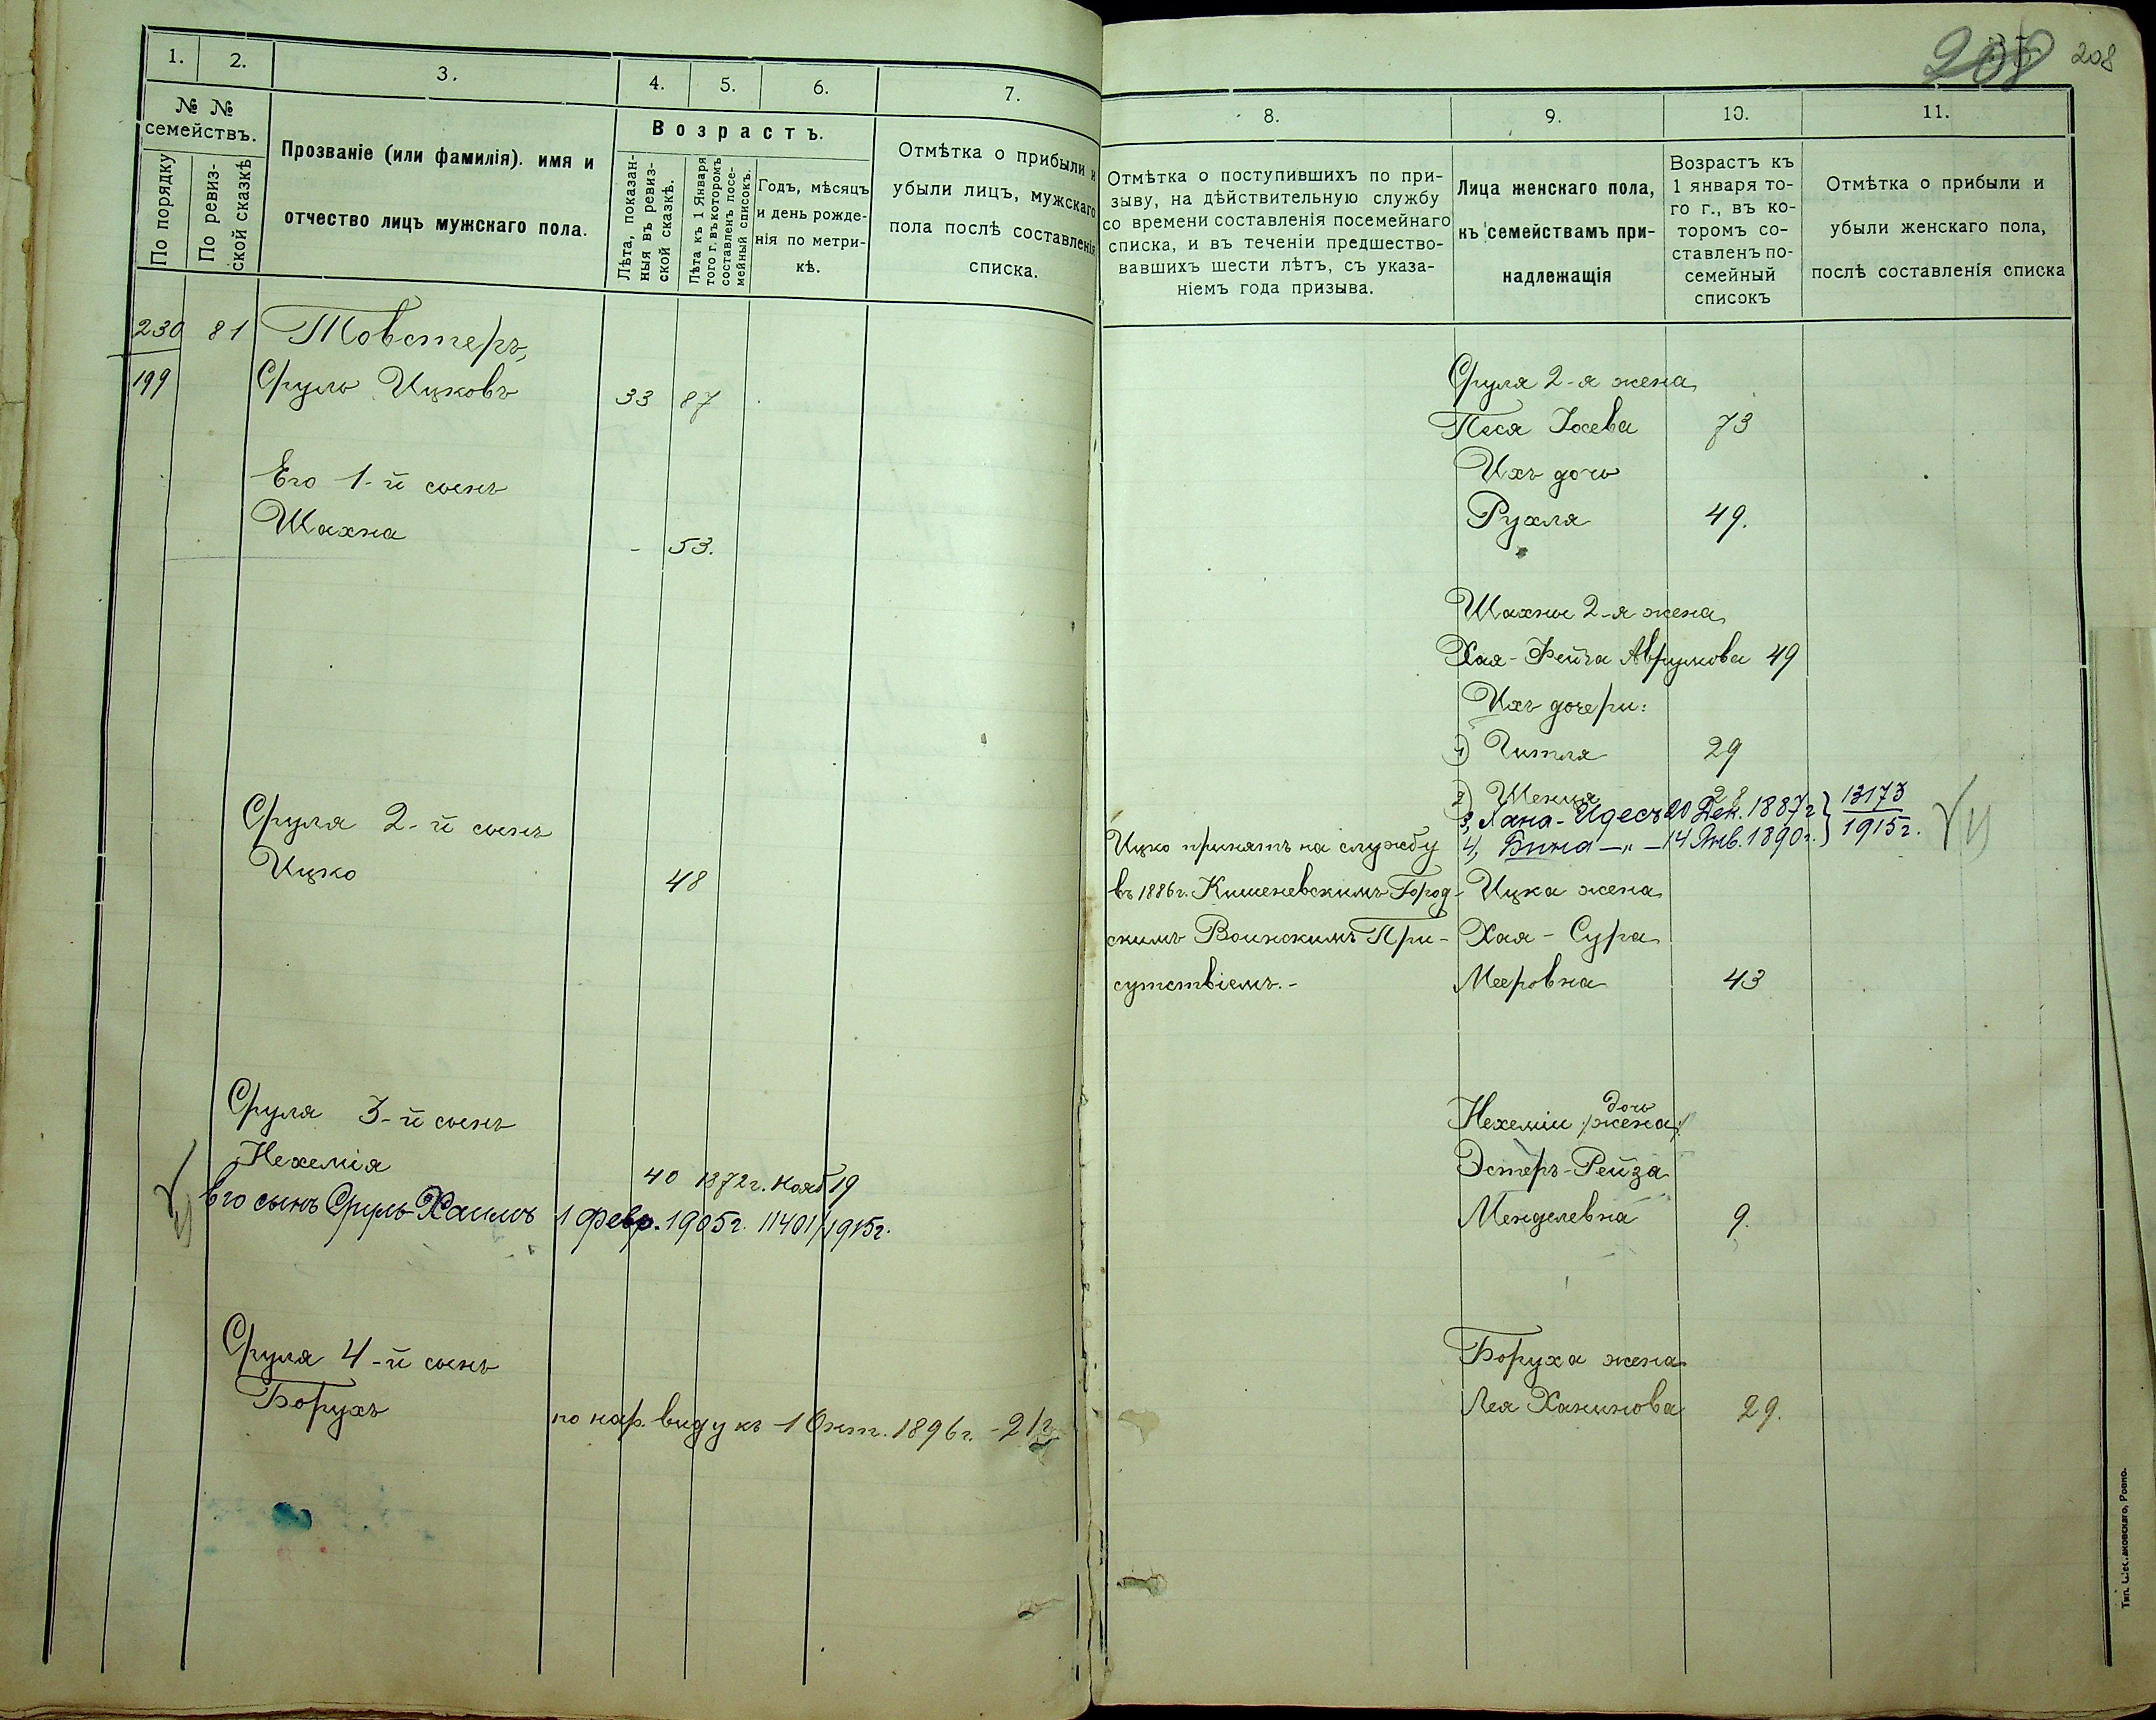 1. 2. 3. 4. 5. 6. 7.
№ № семействъ.
По порядку
По ревиз-
ской сказкѣ
Прозваніе (или фамилія). имя и
отчество лицъ мужскаго пола.
Возрастъ.
Лѣта, показан-
ныя въ ревиз-
ской сказкѣ.
Лѣта къ 1 Января
того г. въ которомъ
составленъ посе-
мейный списокъ.
Годъ, мѣсяцъ
и день рожде-
нія по метри-
кѣ.
Отмѣтка о прибыли и
убыли лицъ, мужскаго
пола послѣ составленія
списка.
230 81 Товстеръ,
199 Сруль Ицковъ 33 87
Его 1-й сынъ
Шахна - 53.
Сруля 2-й сынъ
Ицко 48
Сруля 3-й сынъ
Нехемія 40 1872г. Нояб 19
Его сынъ Сруль-Хаимъ 1 Февр. 1905г. 11401/1915г.
Сруля 4-й сынъ
Борухъ по нар. виду къ 1 Окт. 1896г. - 21 г.
208
8. 9. 10. 11.
Отмѣтка о поступившихъ по при-
зыву, на дѣйствительную службу
со времени составленія посемейнаго
списка, и въ теченіи предшество-
вавшихъ шести лѣтъ, съ указа-
ніемъ года призыва.
Лица женскаго пола,
къ семействамъ при-
надлежащія
Возрастъ къ
1 января то-
го г., въ ко-
торомъ со-
ставленъ по-
семейный
списокъ
Отмѣтка о прибыли и
убыли женскаго пола,
послѣ составленія списка
Сруля 2-я жена
Песя Іосева 73
Ихъ дочь
Рухля 49.
Шахны 2-я жена
Хая-Фейга Аврумова 49
Ихъ дочери:
1) Гитля 29
2) Шенця
3, Хана-Идесъ 20 Дек. 1887г } 13173
4, Бина -„- 14 Янв. 1890г. } 1915г.
Ицко принятъ на службу
въ 1886г. Кишеневскимъ Город-
скимъ Воинскимъ При-
сутствіемъ.-
Ицка жена
Хая-Сура
Мееровна 43
дочь
Нехеміи /жена/
Эстеръ-Рейза
Менделевна 9.
Боруха жена
Лея Ханинова 29.